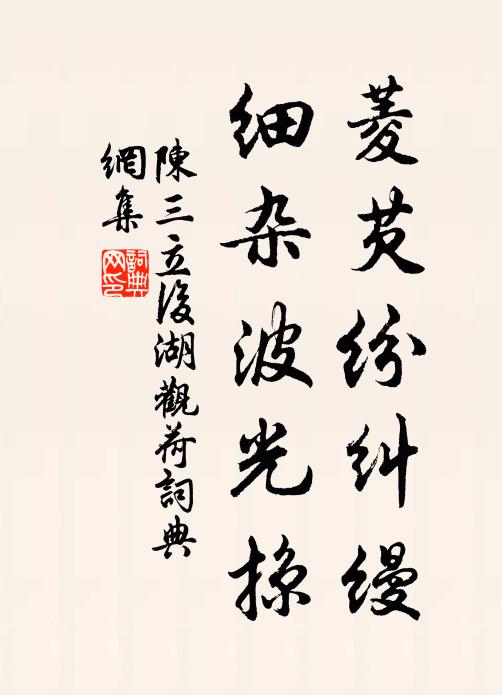 菱芡纷糾縵
细杂波光掠
陳三立後湖觀荷詞典
網集
詞典網印